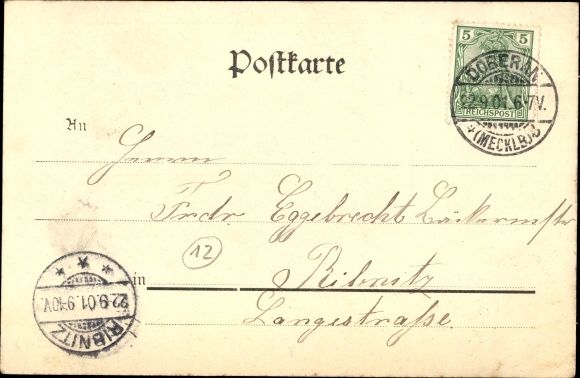 Postkarte
5 5
REICHSPOST
DOBERAN
22.9.01.6-7V.
*(MECKLB)
An
Herrn
Frdr. Eggebrecht Bäckermstr
12
in Ribnitz
Langestraße.
22.9.01.9-10V.
RIBNITZ